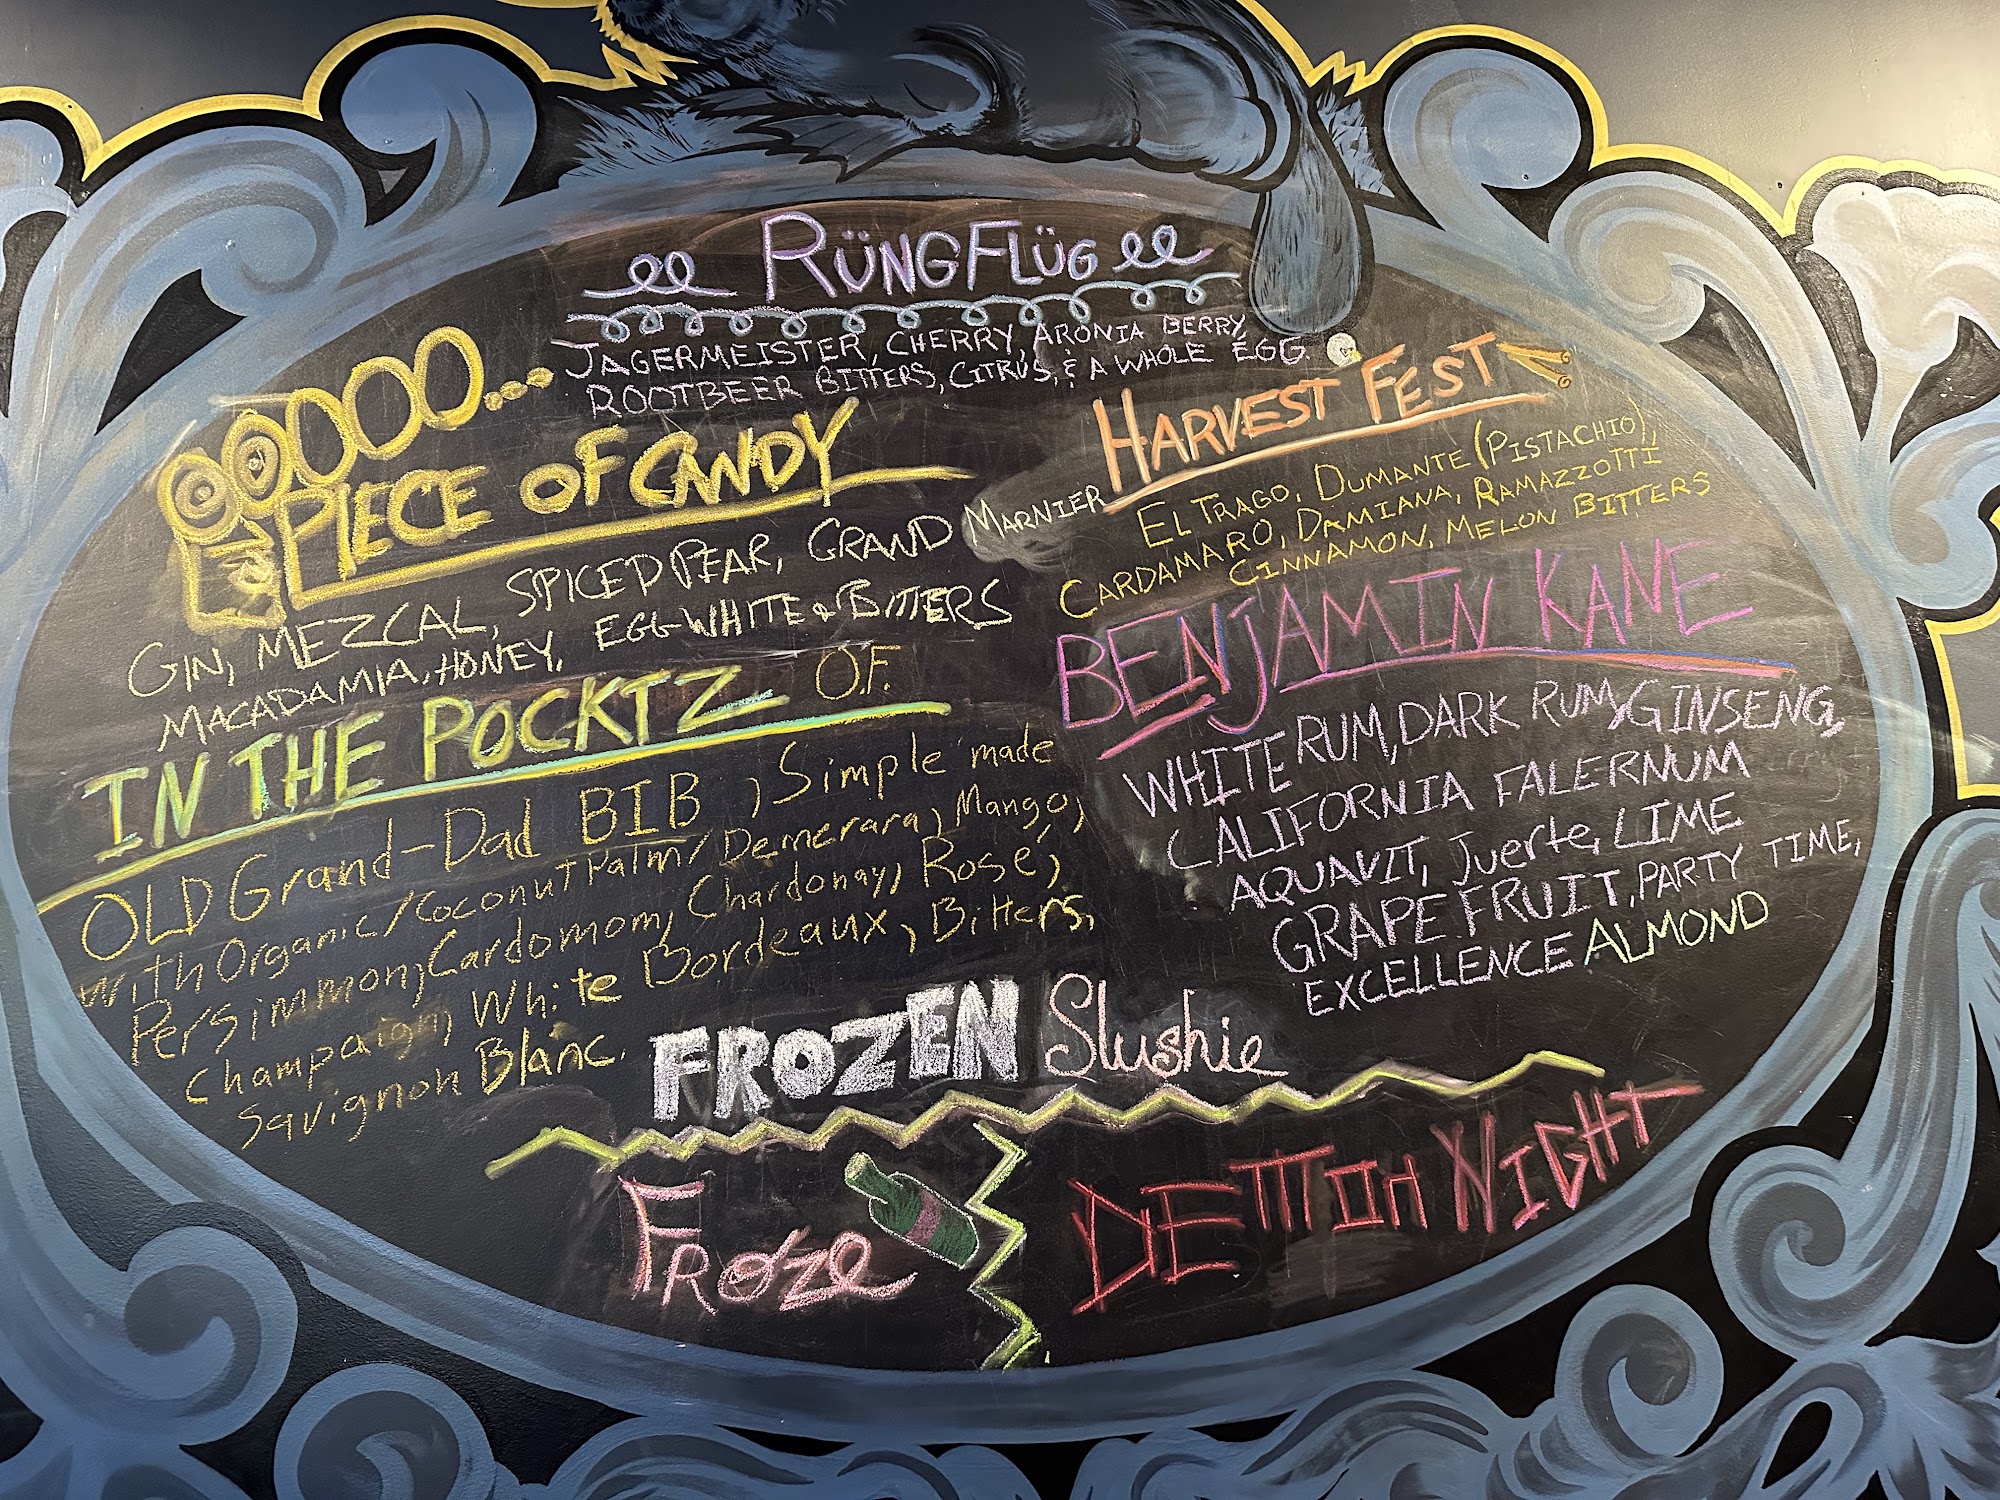 RÜNGFLÜG
JAGERMEISTER, CHERRY, ARONIA BERRY,
ROOTBEER BITTERS, CITRUS, & A WHOLE EGG.
OOOOO...
PIECE OF CANDY
GIN, MEZCAL, SPICED PEAR, GRAND MARNIER
MACADAMIA, HONEY, EGG-WHITE & BITTERS
IN THE POCKTZ O.F.
OLD Grand-Dad BIB, Simple made
with Organic/Coconut Palm/Demerara, Mango,
Persimmon, Cardomom, Chardonay, Rosé,
Champaign, White Bordeaux, Bitters,
Savignon Blanc.
HARVEST FEST
EL TRAGO, DUMANTE (PISTACHIO),
CARDAMARO, DAMIANA, RAMAZZOTTI
CINNAMON, MELON BITTERS
BENJAMIN KANE
WHITE RUM, DARK RUM, GINSENG,
CALIFORNIA FALERNUM
AQUAVIT, Juerte, LIME
GRAPEFRUIT, PARTY TIME,
EXCELLENCE ALMOND
FROZEN Slushie
FROZE
DEMON NIGHT